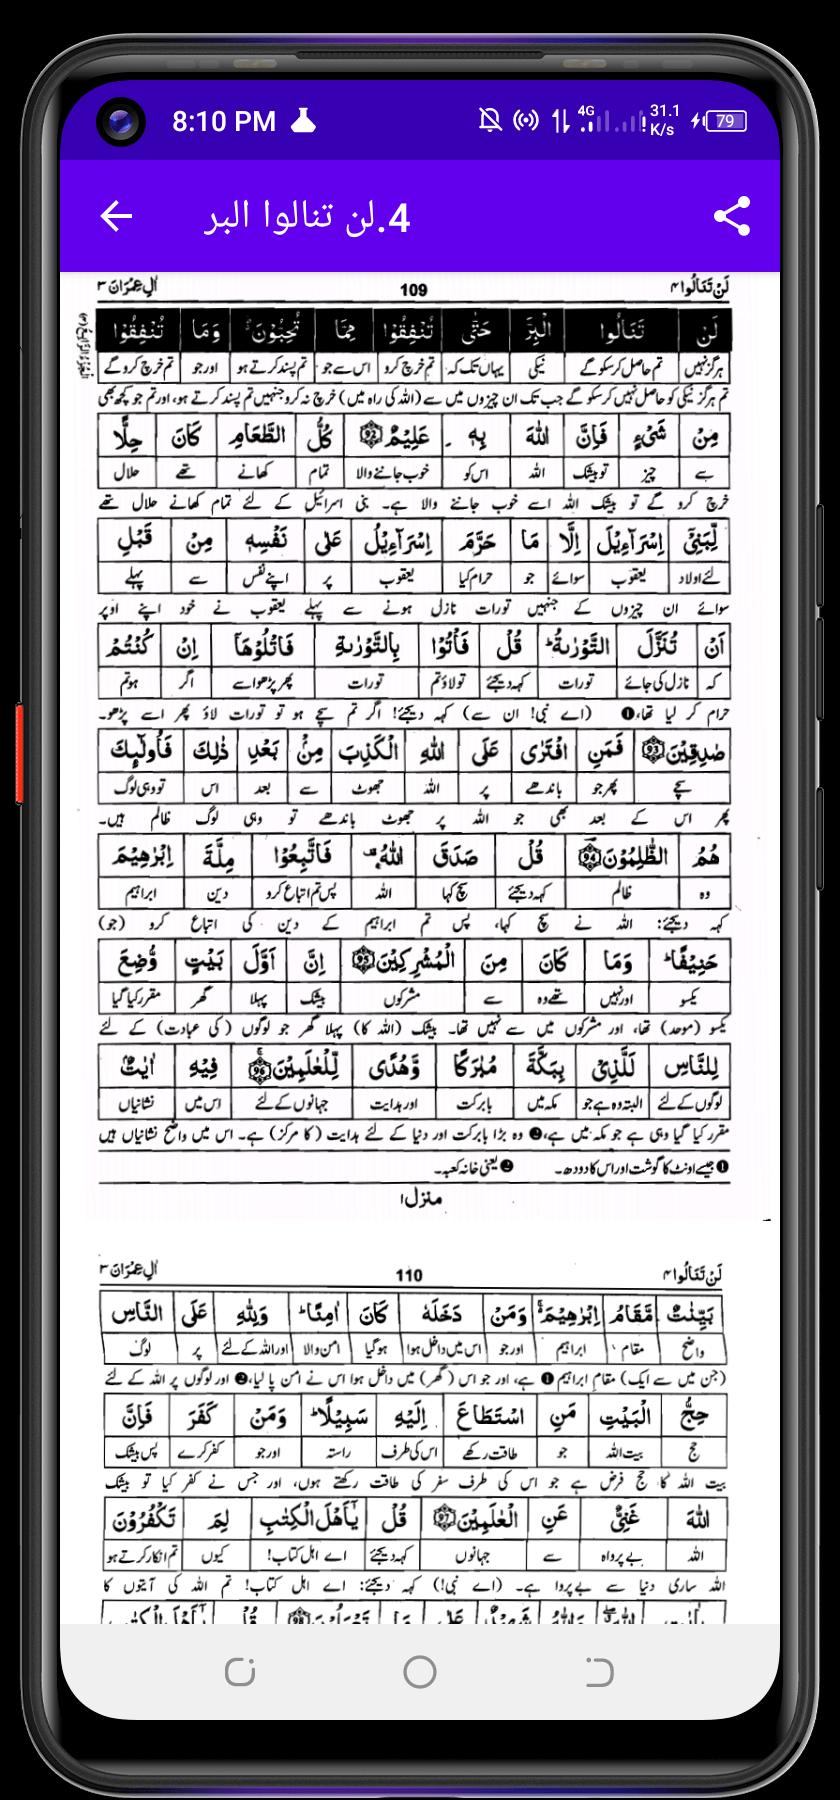 8:10 PM 4G 31.1 K/s 79
4.لن تنالوا البر
لَنْ تَنَالُوا ۴ 109 اٰلِ عِمْرَان ۳
لَنْ تَنَالُوا الْبِرَّ حَتّٰى تُنْفِقُوْا مِمَّا تُحِبُّوْنَ ؕ وَمَا تُنْفِقُوْا
ہرگز نہیں تم حاصل کرسکو گے نیکی یہاں تک کہ تم خرچ کرو اس سے جو تم پسند کرتے ہو اور جو تم خرچ کرو گے
تم ہرگز نیکی کو حاصل نہیں کرسکو گے جب تک ان چیزوں میں سے (اللہ کی راہ میں) خرچ نہ کرو جنہیں تم پسند کرتے ہو، اور تم جو کچھ بھی
مِنْ شَيْءٍ فَاِنَّ اللّٰهَ بِهٖ عَلِيْمٌ ﴿92﴾ كُلُّ الطَّعَامِ كَانَ حِلًّا
سے چیز تو بیشک اللہ اس کو خوب جاننے والا تمام کھانے تھے حلال
خرچ کرو گے تو بیشک اللہ اسے خوب جاننے والا ہے۔ بنی اسرائیل کے لئے تمام کھانے حلال تھے
لِّبَنِيْٓ اِسْرَآءِيْلَ اِلَّا مَا حَرَّمَ اِسْرَآءِيْلُ عَلٰى نَفْسِهٖ مِنْ قَبْلِ
لئے اولاد یعقوب سوائے جو حرام کیا یعقوب پر اپنے نفس سے پہلے
سوائے ان چیزوں کے جنہیں تورات نازل ہونے سے پہلے یعقوب نے خود اپنے اوپر
اَنْ تُنَزَّلَ التَّوْرٰىةُ ؕ قُلْ فَاْتُوْا بِالتَّوْرٰىةِ فَاتْلُوْهَآ اِنْ كُنْتُمْ
کہ نازل کی جائے تورات کہہ دیجئے تو لاؤ تم تورات پھر پڑھو اسے اگر ہو تم
حرام کر لیا تھا، ❶ (اے نبی! ان سے) کہہ دیجئے! اگر تم سچے ہو تو تورات لاؤ پھر اسے پڑھو۔
صٰدِقِيْنَ ﴿93﴾ فَمَنِ افْتَرٰى عَلَى اللّٰهِ الْكَذِبَ مِنْۢ بَعْدِ ذٰلِكَ فَاُولٰٓئِكَ
سچے پھر جو باندھے پر اللہ جھوٹ سے بعد اس تو وہی لوگ
پھر اس کے بعد بھی جو اللہ پر جھوٹ باندھے تو وہی لوگ ظالم ہیں۔
هُمُ الظّٰلِمُوْنَ ﴿94﴾ قُلْ صَدَقَ اللّٰهُ ۫ فَاتَّبِعُوْا مِلَّةَ اِبْرٰهِيْمَ
وہ ظالم کہہ دیجئے سچ کہا اللہ پس تم اتباع کرو دین ابراہیم
کہہ دیجئے: اللہ نے سچ کہا، پس تم ابراہیم کے دین کی اتباع کرو (جو)
حَنِيْفًا ؕ وَمَا كَانَ مِنَ الْمُشْرِكِيْنَ ﴿95﴾ اِنَّ اَوَّلَ بَيْتٍ وُّضِعَ
یکسو اور نہیں تھے وہ سے مشرکوں بیشک پہلا گھر مقرر کیا گیا
یکسو (موحد) تھا، اور مشرکوں میں سے نہیں تھا۔ بیشک (اللہ کا) پہلا گھر جو لوگوں (کی عبادت) کے لئے
لِلنَّاسِ لَلَّذِيْ بِبَكَّةَ مُبٰرَكًا وَّهُدًى لِّلْعٰلَمِيْنَ ﴿96﴾ فِيْهِ اٰيٰتٌۢ
لوگوں کے لئے البتہ وہ ہے جو مکہ میں بابرکت اور ہدایت جہانوں کے لئے اس میں نشانیاں
مقرر کیا گیا وہی ہے جو مکہ میں ہے، ❷ وہ بڑا بابرکت اور دنیا کے لئے ہدایت (کا مرکز) ہے۔ اس میں واضح نشانیاں ہیں
❶ جیسے اونٹ کا گوشت اور اس کا دودھ۔ ❷ یعنی خانہ کعبہ۔
منزل ۱
لَنْ تَنَالُوا ۴ 110 اٰلِ عِمْرَان ۳
بَيِّنٰتٌ مَّقَامُ اِبْرٰهِيْمَ ۚ وَمَنْ دَخَلَهٗ كَانَ اٰمِنًا ؕ وَلِلّٰهِ عَلَى النَّاسِ
واضح مقام ابراہیم اور جو اس میں داخل ہوا ہوگیا امن والا اور اللہ کے لئے پر لوگ
(جن میں سے ایک) مقام ابراہیم ❶ ہے، اور جو اس (گھر) میں داخل ہوا اس نے امن پا لیا، ❷ اور لوگوں پر اللہ کے لئے
حِجُّ الْبَيْتِ مَنِ اسْتَطَاعَ اِلَيْهِ سَبِيْلًا ؕ وَمَنْ كَفَرَ فَاِنَّ
حج بیت اللہ جو طاقت رکھے اس کی طرف راستہ اور جو کفر کرے پس بیشک
بیت اللہ کا حج فرض ہے جو اس کی طرف سفر کی طاقت رکھتے ہوں، اور جس نے کفر کیا تو بیشک
اللّٰهَ غَنِيٌّ عَنِ الْعٰلَمِيْنَ ﴿97﴾ قُلْ يٰٓاَهْلَ الْكِتٰبِ لِمَ تَكْفُرُوْنَ
اللہ بے پرواہ سے جہانوں کہہ دیجئے اے اہل کتاب! کیوں تم انکار کرتے ہو
اللہ ساری دنیا سے بے پروا ہے۔ (اے نبی!) کہہ دیجئے: اے اہل کتاب! تم اللہ کی آیتوں کا